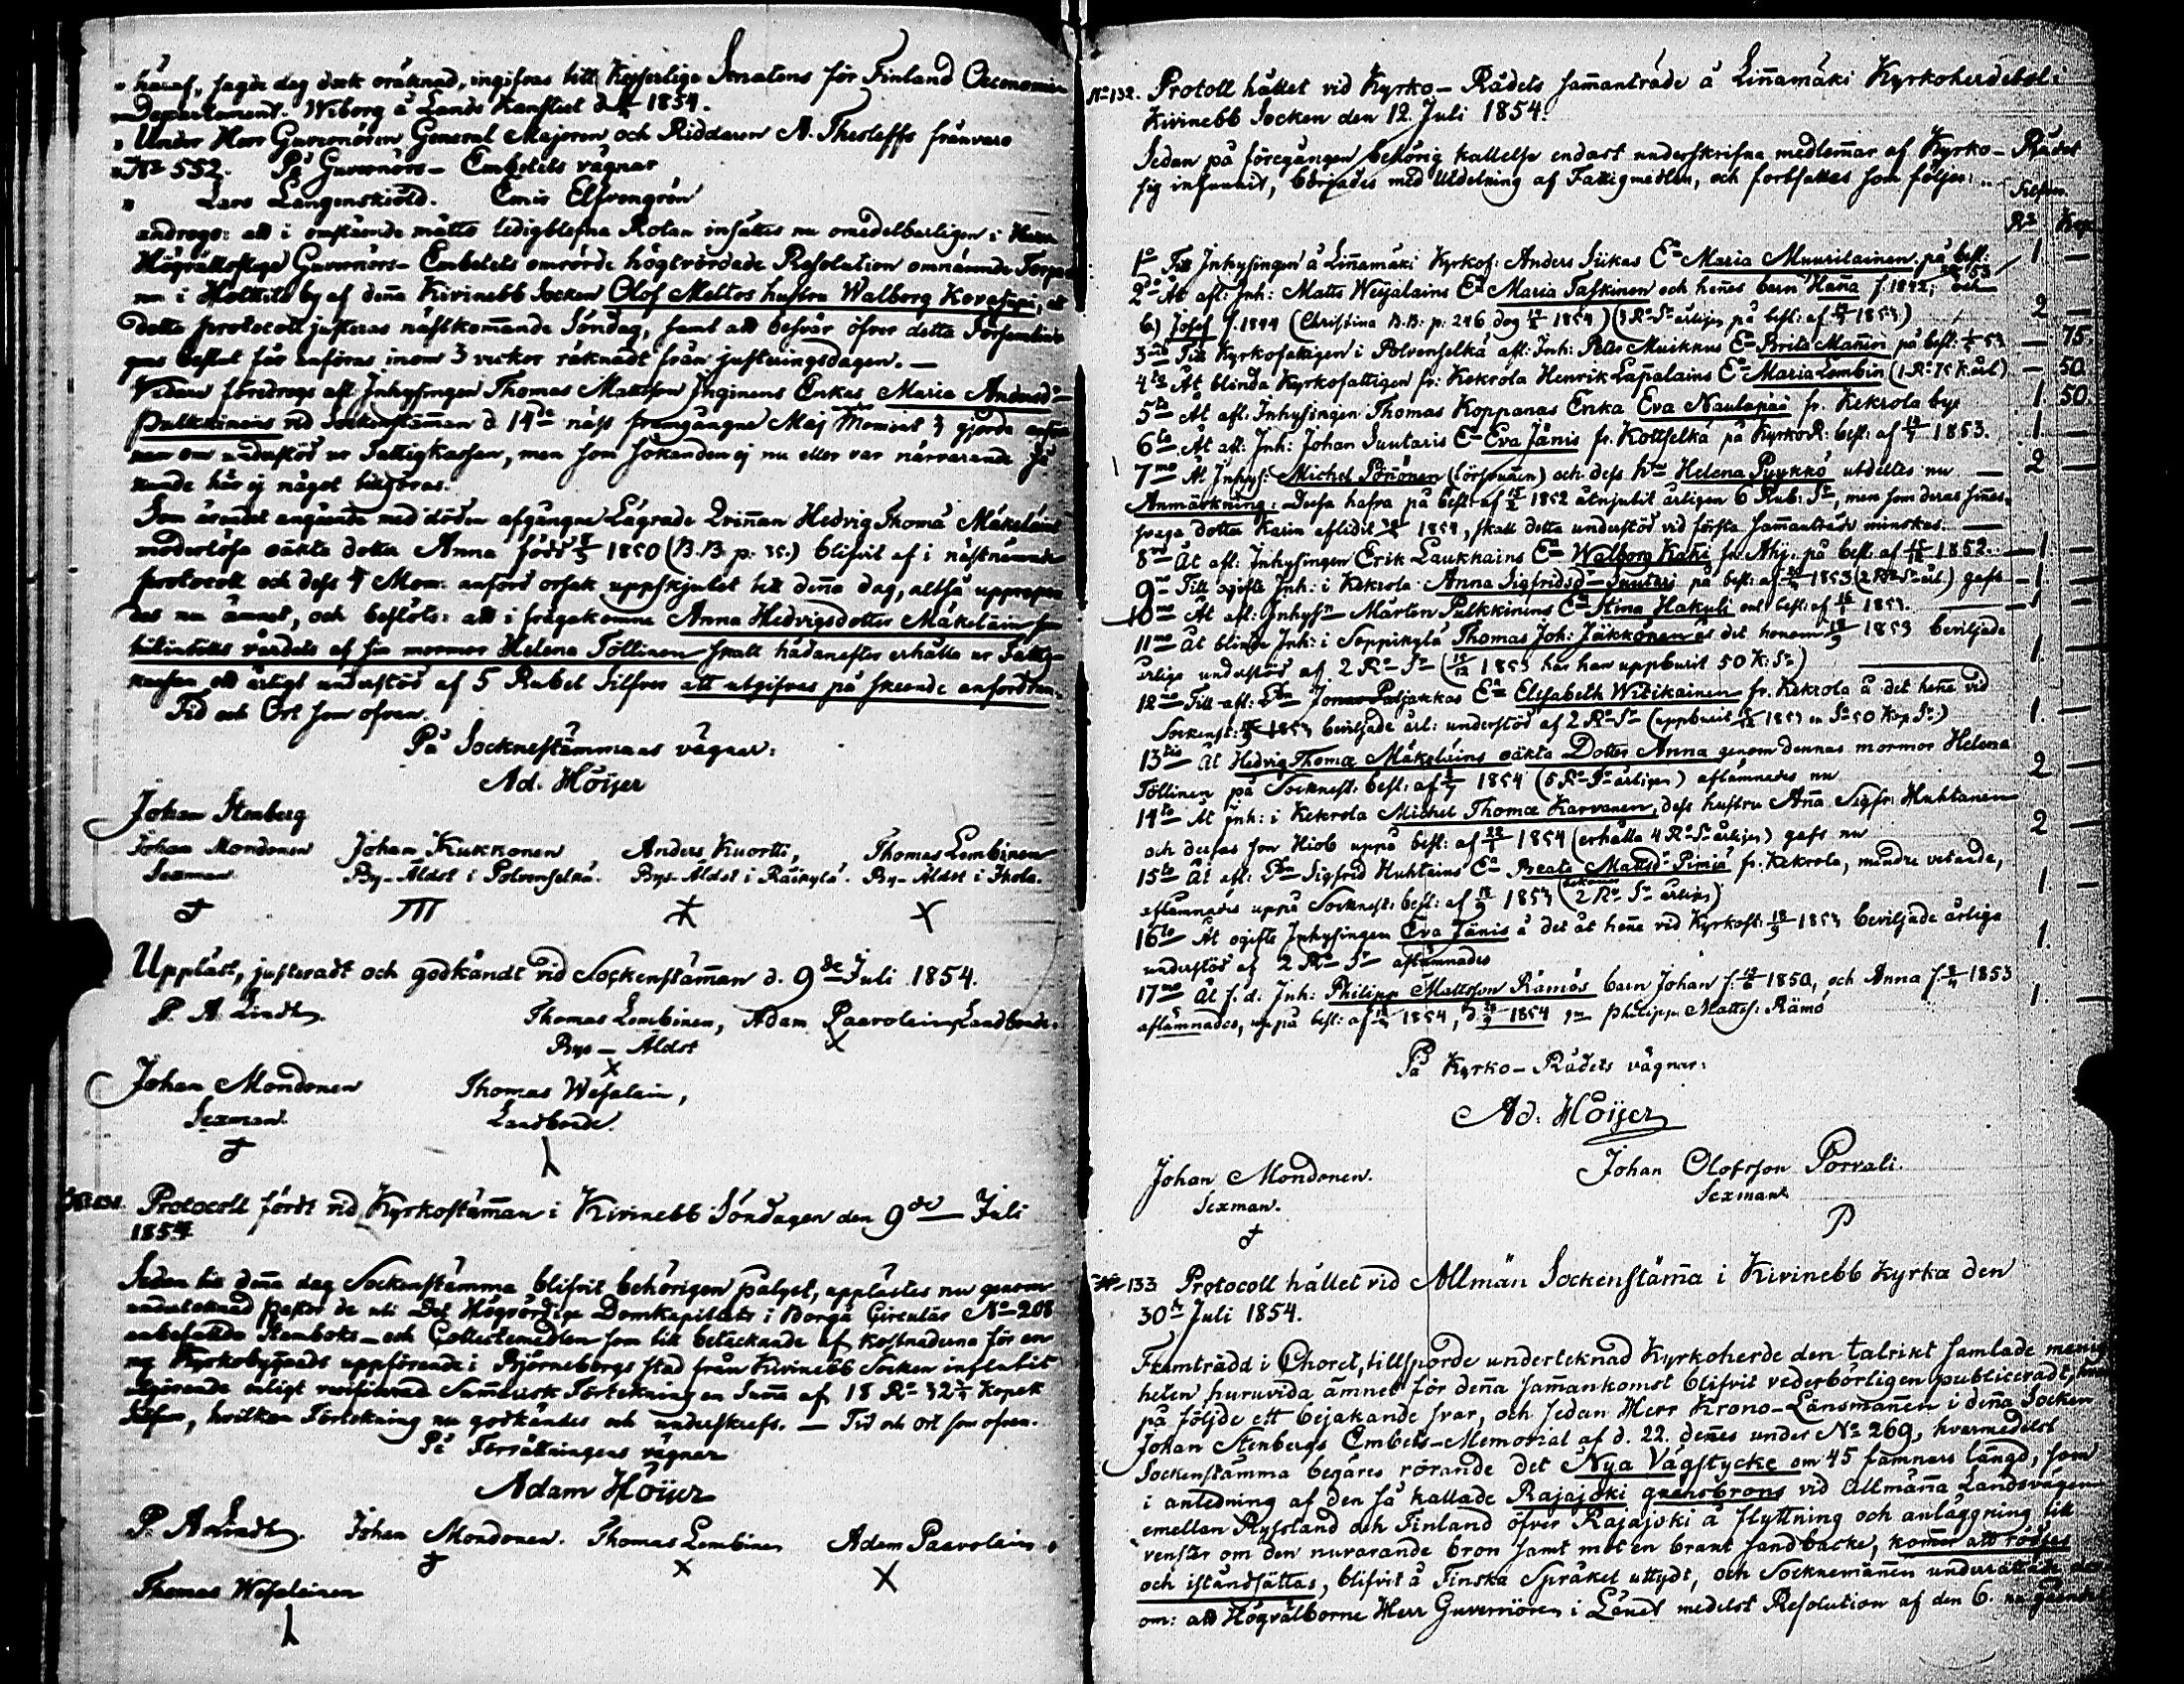 " häraf, sagde dag dock oräknad, ingifvas till Kejserliga Senatens för Finland Oeconomie
" Departement. Wiborg å Lands Kansliet d. 1854.
" Under Herr Guvernören General Majoren och Riddaren A. Thesleffs frånvaro
" No 552. På Guvernörs-Embetets vägnar
" Lars Langenskiöld. Emis Elfvengrén
androgs: att i omstående måtto ledigblefna Rotan insättes nu omedelbarligen i
Högvälloflige Guvernörs-Embetets omrörde högtvördade Resolution omnämnde
nu i Holttila by af denna Kivinebb Socken Olof Meltos hustru Walborg, att
detta protocoll justeras nästkommande Söndag, samt att besvär öfver detta
gens beslut får anföras inom 3 veckor räknadt från justeringsdagen. —
Vidare föredrogs afl. Inhysingen Thomas Mattsson Inginens Enkas Maria Andersd:r
Pulkkinens vid Sockenstämman d. 14de näst framgångne Maj Moment 3 gjorda
om understöd ur Fattigkassan, men som sökanden ej nu eller var närvarande så
kunde här ej något tillgöras.
Som ärendet angående med döden afgångne Lägrade Qvinnan Hedvig Thomæ Mäkeläins
moderlösa oäkta dotter Anna född 1850 (B.B. p: 35.) blifvit af i nästnämnde
protocoll och dess 4 Mom: anförd orsak uppskjutet till denna dag, altså
des nu ämnet, och beslöts: att i frågakomne Anna Hedvigsdotter Mäkeläin som
hitintills vårdats af sin mormor Helena Töttinen skall hädanefter erhålla ur Fattig-
kassan ett årligt understöd af 5 Rubel Silfver att utgifvas på skeende anfordran.
Tid och Ort som ofvan.
På Socknestämmans vägnar:
Ad. Höijer
Johan Stenberg
Johan Mondonen Johan Kukkonen Anders Kuortti, Thomas Lembinen
Sexman. By-Äldst i Polvenselkä. Bys-Äldst i Räikylä. By-Äldst i Ikola.
III X
Uppläst, justeradt och godkändt vid Sockenstämman d. 9de Juli 1854.
P. A. Lindh. Thomas Lembinen, Adam Paavolain Landbonde.
Bys-Äldst X
X
Johan Mondonen Thomas Wesalain,
Sexman. Landbonde.
Protocoll fördt vid Kyrkostämman i Kivinebb Söndagen den 9de Juli
1854
Sedan till denna dag Sockenstämma blifvit behörigen pålyst, upplästes nu genom
undertecknad pastor de uti Det Högvördiga Domkapitlets i Borgå Circulär No 208
anbefallda Stamboks- och Collectemedlen som till betäckande af kostnaderna för en
ny Kyrkobyggnads uppförande i Björneborgs stad från Kivinebb Socken influtit
utgörande enligt verificerad Summarisk Förtekning en Summa af 18 Ro 32 Kopek
Silfver, hvilken Förtekning nu godkändes och underskrefs. — Tid och Ort som ofvan.
På Förrättningens vägnar
Adam Höijer
P. A. Lindh. Johan Mondonen. Thomas Lembinen Adam Paavolain.
X X
Thomas Wesalainen
No 132. Protoll hållet vid Kyrko-Rådets sammanträde å Linnamäki Kyrkoherdebol i
Kivinebb Socken den 12. Juli 1854.
Sedan på föregången behörig kallelse endast underskrifna medlemmar af Kyrko-Rådet
sig infunnit, börjades med Utdelning af Fattigmedlen, och fortsattes som följer:
Silfver
Ro Kop
1o Till Inhysingen å Linnamäki Kyrkof: Anders Siikas E:a Maria Muurilainen på besl: 1 —
2o Åt afl: Inh: Matts Wesalains E:a Maria Taskinen och hennes barn Hanna f. 1842; och
b) Josef f. 1844 (Christina B.B: p: 246 dog 1854) (3 Ro So årligen på besl: af 1853) 2 —
3tio Till Kyrkofattigen i Polvenselkä afl: Inh: Petter Muikkus E:a Brita Mannin på besl: 53 — 75.
4to Åt blinda Kyrkofattigen fr: Kekrola Henrik Lapalains E:a Maria Lembin (1 Ro 75 K årl) — 50.
5to Åt afl: Inhysingen Thomas Koppanas Enka Eva Naulapää fr. Kekrola by 1. 50.
6to Åt afl: Inh: Johan Suutaris E:a Eva Jänis fr. Kottselkä på Kyrko R: besl: af 1853. 1 —
7mo Åt Inhys: Michel Pönönen (försvunnen) och dess h:u Helena Pyykkö utdeltes nu — 2 —
Anmärkning: Dessa hafva på besl: af 1852 åtnjutit årligen 6 Rub: So, men som deras sinnes-
svaga dotter Karin aflidit 1854, skall detta understöd vid första sammanträde minskas. —
8vo Åt afl: Inhysingen Erik Laukkains E:a Walborg Kaki fr. Ahj: på besl: af 1852. — 1 —
9no Till ogifta Inh: i Kekrola Anna Sigfridsd:r Suutari på besl: af 1853 (2 Ro So årl) gafs — 1 —
10mo Åt afl: Inhys:n Mårten Pulkkinens E:a Stina Hakuli enl: besl: af 1853. — 1 —
11mo Åt blinde Inh: i Seppikylä Thomas Joh: Jäkkönen är det honom 1853 beviljade
årliga understöd af 2 Ro So (1853 har han uppburit 50 K: So) 1. —
12mo Till afl: Jonas Paljakkas E:a Elisabeth Witikainen fr. Kekrola å det henne vid
Sockenst: 1853 beviljade årl: understöd af 2 Ro So (uppburit 1853 50 Kop So) 1. —
13tio Åt Hedvig Thomæ Mäkeläins oäkta Dotter Anna genom dennas mormor Helena
Töllinen på Socknest: besl: af 1854 (5 Ro So årligen) aflämnades nu 2 —
14to Åt Inh: i Kekrola Michel Thomæ Karvanen, dess hustru Anna Sigfr: Huhtanen
och dessas son Hiob uppå besl: af 1854 (erhålla 4 Ro So årligen) gafs nu 2 —
15to Åt afl: Sigfrid Huhtains E:a Beata Mattsd:r Pimiä fr. Kekrola, mindre vetande,
aflämnades uppå Socknest: besl: af 1853 (2 Ro So årligen) 1 —
16to Åt ogifta Inhysingen Eva Jänis å det åt henne vid Kyrkost: 1853 beviljade årliga
understöd af 2 Ro So aflämnades 1.
17mo Åt f. d. Inh: Philipp Mattsson Rämös barn Johan f. 1850, och Anna f. 1853
aflämnades, uppå besl: af 1854, d. 1854 Philipp Mattss: Rämö 1. —
På Kyrko-Rådets vägnar:
Ad: Höijer
Johan Mondonen. Johan Olofsson Porvali.
Sexman. Sexman
P
No 133 Protocoll hållet vid Allmän Sockenstämma i Kivinebb Kyrka den
30de Juli 1854.
Framträdd i Choret, tillsporde underteknad Kyrkoherde den talrikt samlade menig
heten huruvida ämnet för denna sammankomst blifvit vederbörligen publiceradt,
på följde ett bejakande svar, och sedan Herr Krono-Länsmannen i denna Socken
Johan Stenbergs Embets-Memorial af d. 22. dennes under No 269, hvarmedelst
Sockenstämma begäres rörande det Nya Vägstycke om 45 famnars längd, som
i anledning af den så kallade Rajajoki gränsbrons vid Allmänna Landsvägen
emellan Ryssland och Finland öfver Rajajoki å flyttning och anläggning till
venster om den nuvarande bron samt mot en brant sandbacke, kommer att röjas
och iståndsättas, blifvit å Finska Språket uttydt, och Sockneménnen underrättade der
om: att Högvälborne Herr Guvernören i Länet medelst Resolution af den 6.